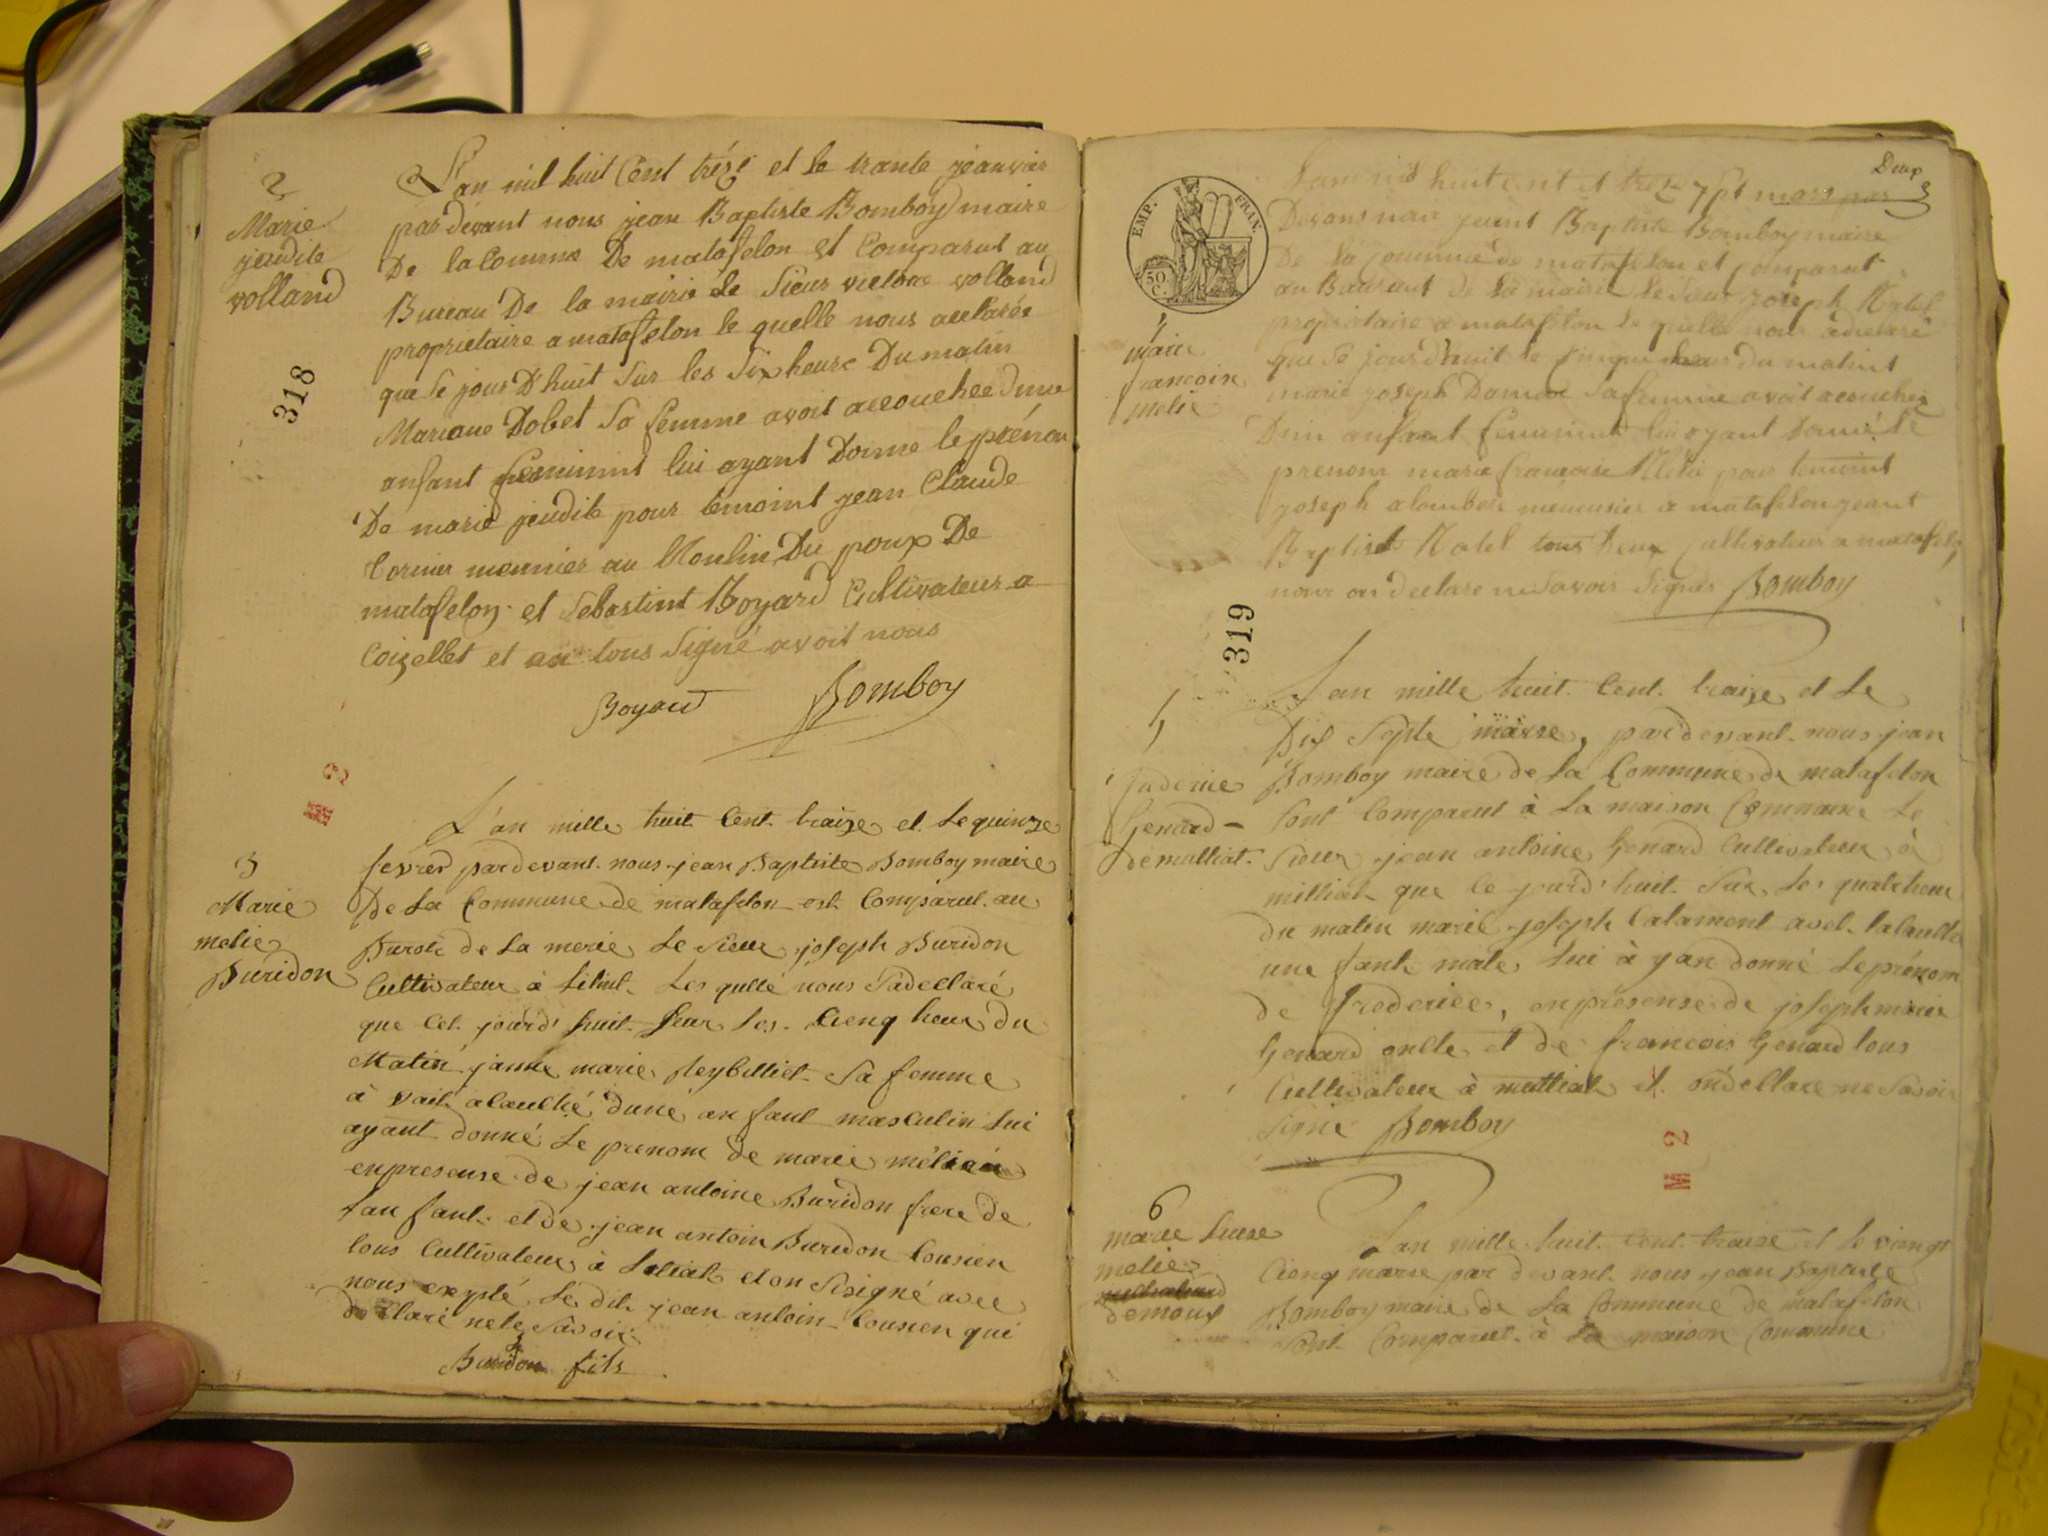 2
Marie
jeudite
volland
318
L'an mil huit Cent trése et le trante jeanvier
par dévant nous jean Baptiste Bomboy maire
De la Comune De matafelon et Comparut au
Bureau De la mairie le Sieur victore volland
proprietaire a matafelon le quelle nous aeclarée
que Se jour D'huit Sur les Six heure Du matin
Mariane Dobet Sa femme avoit accouchee d'une
anfant feminint lui ayant Donne le prénon
De marie jeudite pour temoint jean Claude
Cormier meunier au Moulin Du poux De
matafelon et Sebastient Boyard Cultivateur a
Coizellet et on tous Signé avoit nous
Boyard Bomboy
M 2
3
Marie
melie
Buridon
L'an mille huit Cent traize et Le quinze
fevrer pardevant nous jean Baptiste Bomboy maire
De La Commune de matafelon est Comparut au
Buroix de La merie Le Sieur joseph Buridon
Cultivateur à Les qulle nous Sadecllaré
que Cet jourd'huit Seur Les Cienq heur du
Matin janne marie Reybilliet Sa femme
à vait alaucthé duné an fant masculin Lui
ayant donné Le prenom de marie mélie
enpresense de jean antoine Buridon frere de
L'an fant et de jean antoin Buridon Cousien
tous Cultivateur à et on Sisigné avec
nous exepté Le dit jean antoin Cousien qui
declaré nele Savoir
Buridon fils
Deux
EMP. FRAN.
50 C.
marie
francoise
melie
319
L'an mil huit cent et treze 7pt mars par
Devans nous jeant Baptiste Bomboy maire
De la commune de matafelon et comparut
au Bauraut de la mairie le Sieur joseph Matel
proprietaire a matafelon le quelle nous adeclaré
que Se jour d'huit le heur du matint
marie joseph Sa femme avoit acouchée
Dun anfant feminint lui ayant donné le
prenom marie francoise Melie pour temoint
joseph alombert menusier a matafelon jeant
Baptiste Matel tous deux Cultivateur a matafelon
nour on declare ne Savoir Signer Bomboy
5
fraderice
Genard
demulliat
L'an mille huit Cent traize et Le
Dix Septe marse, pardevant nous jean
Bomboy maire de La Commune de matafelon
Sont Comparut à La maison Commune Le
Sieur jean antoine Genard Cultivateur à
milliat que Ce jourd'huit Sur Les quatrheur
du matin marie joseph Catament avet
une fant male Lui à yan donné Leprénom
de frederice, enpresense de joseph marie
Genard oncle et de francois Genard tous
Cultivateur à mulliat et ondecllare ne Savoir
Signe Bomboy
M 2
6
marie Luise
melie
demous
L'an mille huit Cent traize et Le viengt
Cienq marse par devant nous jean Baptiste
Bomboy maire de La Commune de matafelon
Sont Comparut à La maison Commune